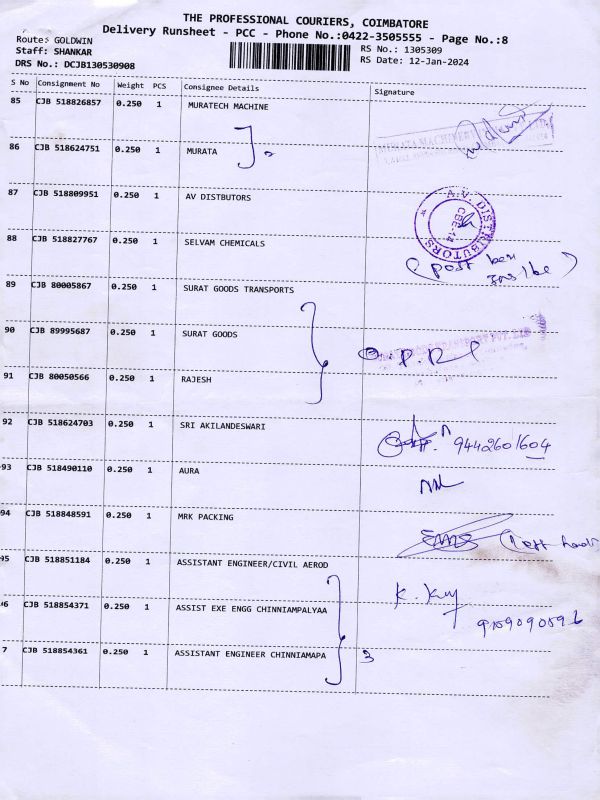 THE PROFESSIONAL COURIERS, COIMBATORE
Delivery Runsheet - PCC - Phone No.:0422-3505555 - Page No.:8
Route: GOLDWIN
Staff: SHANKAR
DRS No.: DCJB130530908
RS No.: 1305309
RS Date: 12-Jan-2024
S No Consignment No Weight PCS Consignee Details Signature
85 CJB 518826857 0.250 1 MURATECH MACHINE
86 CJB 518624751 0.250 1 MURATA
87 CJB 518809951 0.250 1 AV DISTBUTORS
A.V. DISTRIBUTORS
CBE-14
88 CJB 518827767 0.250 1 SELVAM CHEMICALS
(post box
89 CJB 80005867 0.250 1 SURAT GOODS TRANSPORTS
90 CJB 89995687 0.250 1 SURAT GOODS
91 CJB 80050566 0.250 1 RAJESH
92 CJB 518624703 0.250 1 SRI AKILANDESWARI
9442601604
93 CJB 518490110 0.250 1 AURA
94 CJB 518848591 0.250 1 MRK PACKING
95 CJB 518851184 0.250 1 ASSISTANT ENGINEER/CIVIL AEROD
96 CJB 518854371 0.250 1 ASSIST EXE ENGG CHINNIAMPALYAA
7 CJB 518854361 0.250 1 ASSISTANT ENGINEER CHINNIAMAPA 3